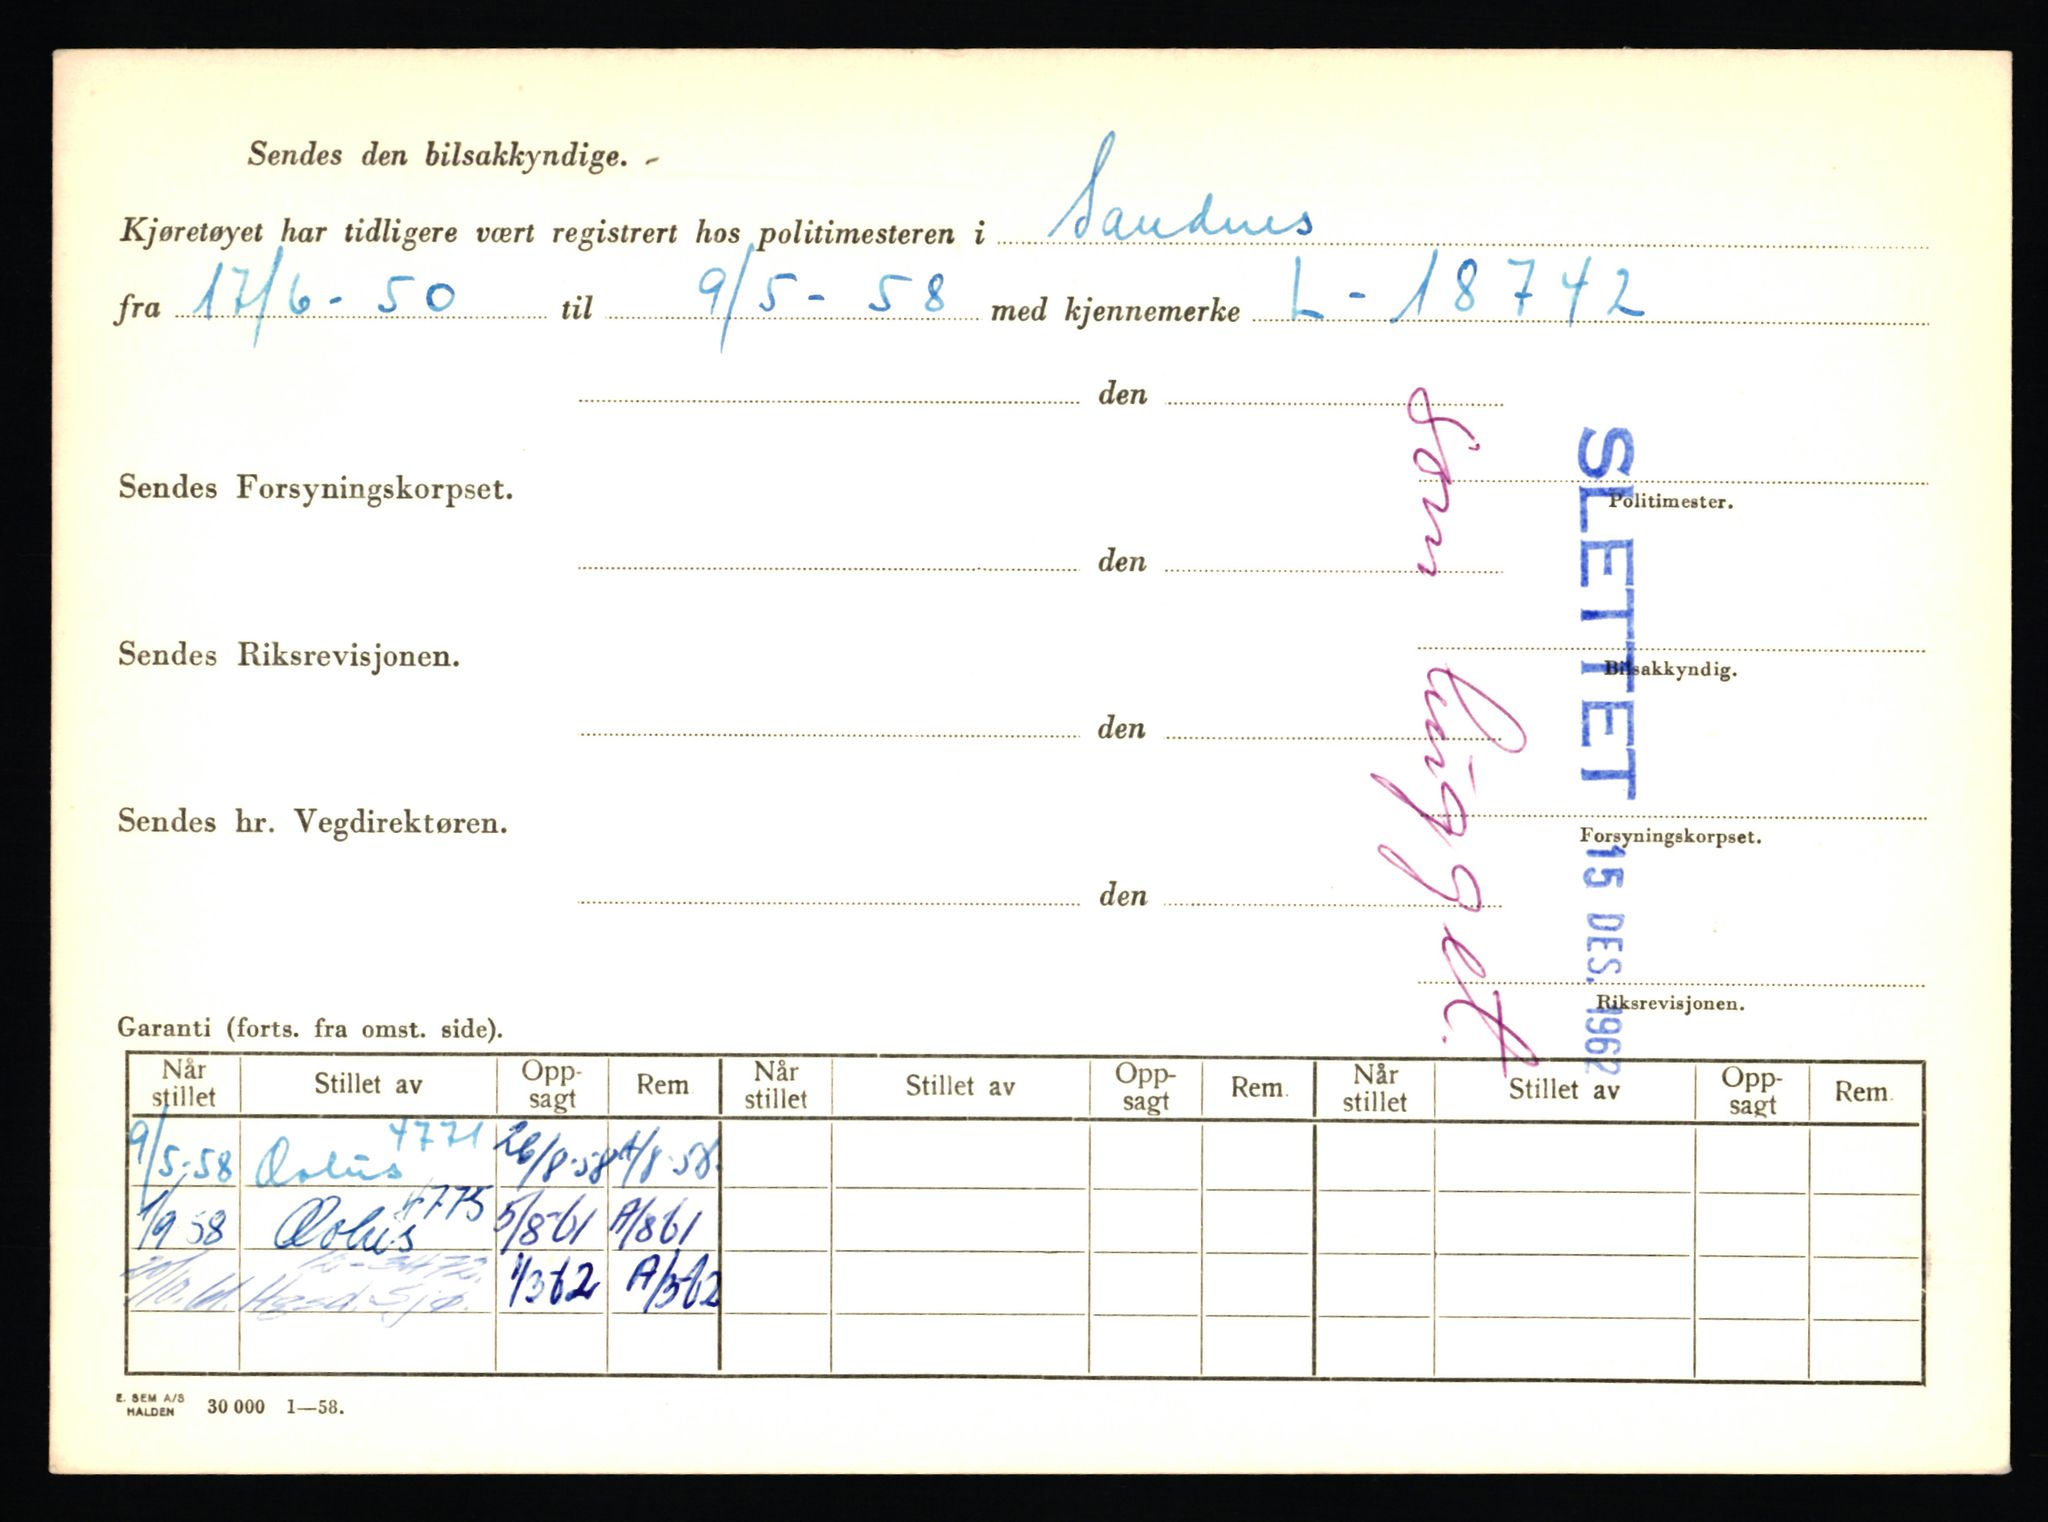 Sendes den bilsakkyndige.
Kjøretøyet har tidligere vært registrert hos politimesteren i Sandnes
fra 17/6-50 til 9/5-58 med kjennemerke L-18742
den
Politimester.
Sendes Forsyningskorpset.
den
Bilsakkyndig.
Sendes Riksrevisjonen.
den
Forsyningskorpset.
Sendes hr. Vegdirektøren.
den
Riksrevisjonen.
Som hugget.
SLETTET 15 DES. 1962
Garanti (forts. fra omst. side).
Når stillet Stillet av Oppsagt Rem. Når stillet Stillet av Oppsagt Rem. Når stillet Stillet av Oppsagt Rem.
9/5-58 Æolus 4771 26/8-58 A/8-58.
1/9 58 Æolus 4775 5/8-61 A/8 61
1/3 62 A/3-62
E. SEM A/S
HALDEN 30 000 1—58.